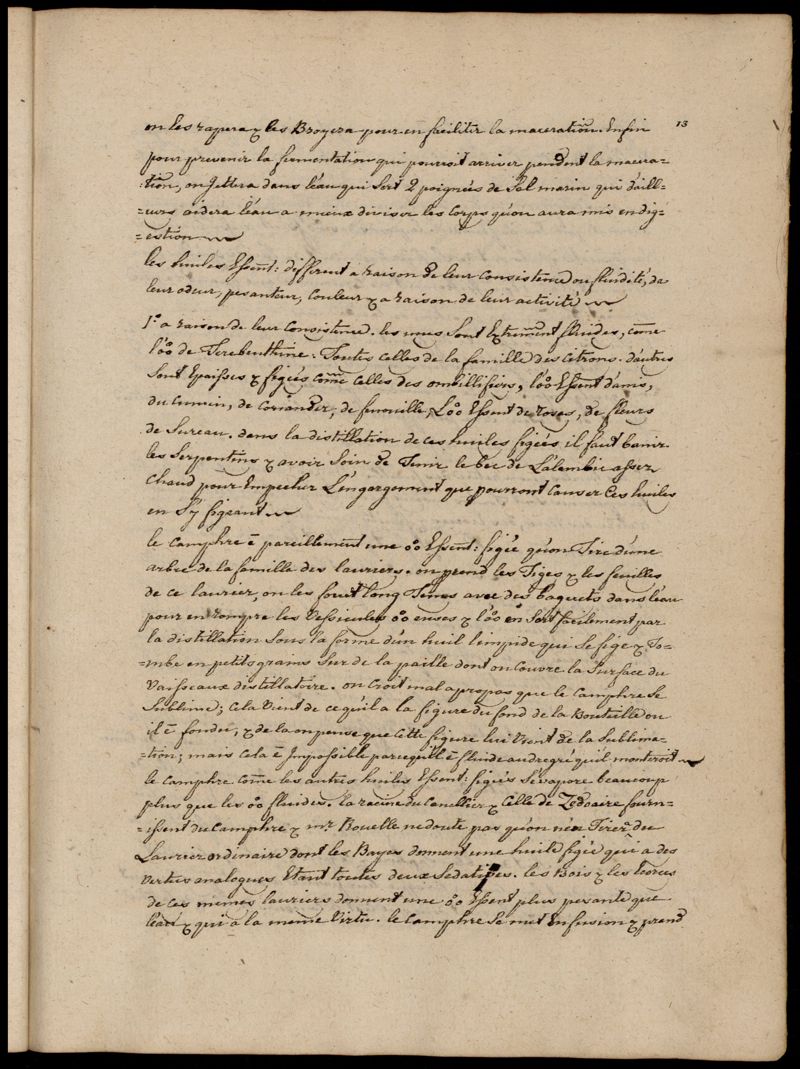 13
on les rapera & les Broyera pour en faciliter la maceration. Enfin
pour prevenir la fermentation qui pourroit arriver pendent la macera=
:tion, on Jettera dans l'eau qui sert 2 poignées de Sel marin qui d'aill=
=eurs aidera l'eau a mieux diviser les Corps qu'on aura mis en dig=
=estion
les huiles Essent: different a raison de leur Consistence ou fluidité, de
leur odeur, pesanteur, Couleur & a raison de leur activité
1.° a raison de leur Consistence. les unes sont Extremt fluides, come
l'oo de Terebenthine. Toutes celles de la famille des citrons. d'autres
sont Epaisses & figées come celles des ombillifères, l'oo Essent d'anis,
du Cumin, de coriander, de fenouille, L'oo Essent de roses, de fleurs
de Sureau. dans la distillation de ces huiles figées il faut banir
les Serpentins & avoir soin de Tenir le bec de L'alembic assez
Chaud pour Empecher L'engorgement que pourront causer Ces huiles
en S'y figeant
le camphre ē pareillement une oo Essent: figée qu'on Tire d'une
arbre de la famille des lauriers. on prend les Tiges & les feuilles
de ce laurier, on les fouit long Tems avec des baguets dans l'eau
pour en rompre les Vessicules oo euses & l'oo en sort facilement par
la distillation sous la forme d'un huil limpide qui se fige & To=
=mbe en petits grains sur de la paille dont on couvre la Surface du
Vaisseaux distillatoire. on croit mal a propos que le Camphre se
Sublime; cela vient de ce qu'il a la figure du fond de la Bouteille ou
il ē fondu, & de la on pense que cette figure lui vient de la Sublima=
=tion; mais cela ē Impossible parcequ'il ē fluide au degré qu'il monteroit
le camphre come les autres huiles Essent: figées S'evapore beaucoup
plus que les oo fluides. la racine du Canellier & Celle de Zedoaire fourn=
=issent du Camphre & mr. Rouelle ne doute pas qu'on n'en Tirer. du
Laurier ordinaire dont les Bayes donnent une huile figée qui a des
vertus analogues Etant toutes deux Sedatives. les Bois & les
de ces mêmes lauriers donnent une oo Essent plus pesante que
l'eau & qui a la meme Virtu. le camphre se met En fusion & prend